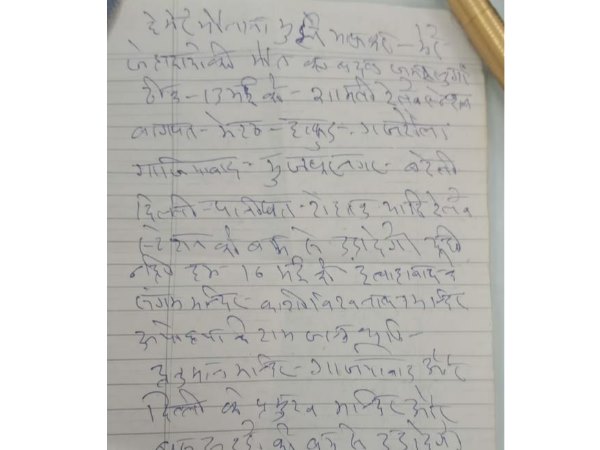 हे मेरे मौलाना मुझे
जेहादियो की मौत का बदला जरूर लुंगा
ठीक - 13 मई को - शामली रेलवे स्टेशन
बागपत - मेरठ - हापुड़ - गजरौला
गाजियाबाद - मुजफ्फरनगर - बरेली
दिल्ली - पानीपत - रोहतक आदि रेलवे
स्टेशन को बम से उड़ा देंगे
हम 16 मई को इलाहाबाद के
संगम मन्दिर - काशी विश्वनाथ मन्दिर
अयोध्या के राम जन्म भूमि -
हनुमान मन्दिर - गाजियाबाद और
दिल्ली के प्रमुख मन्दिर और
को बम से उड़ा देंगे